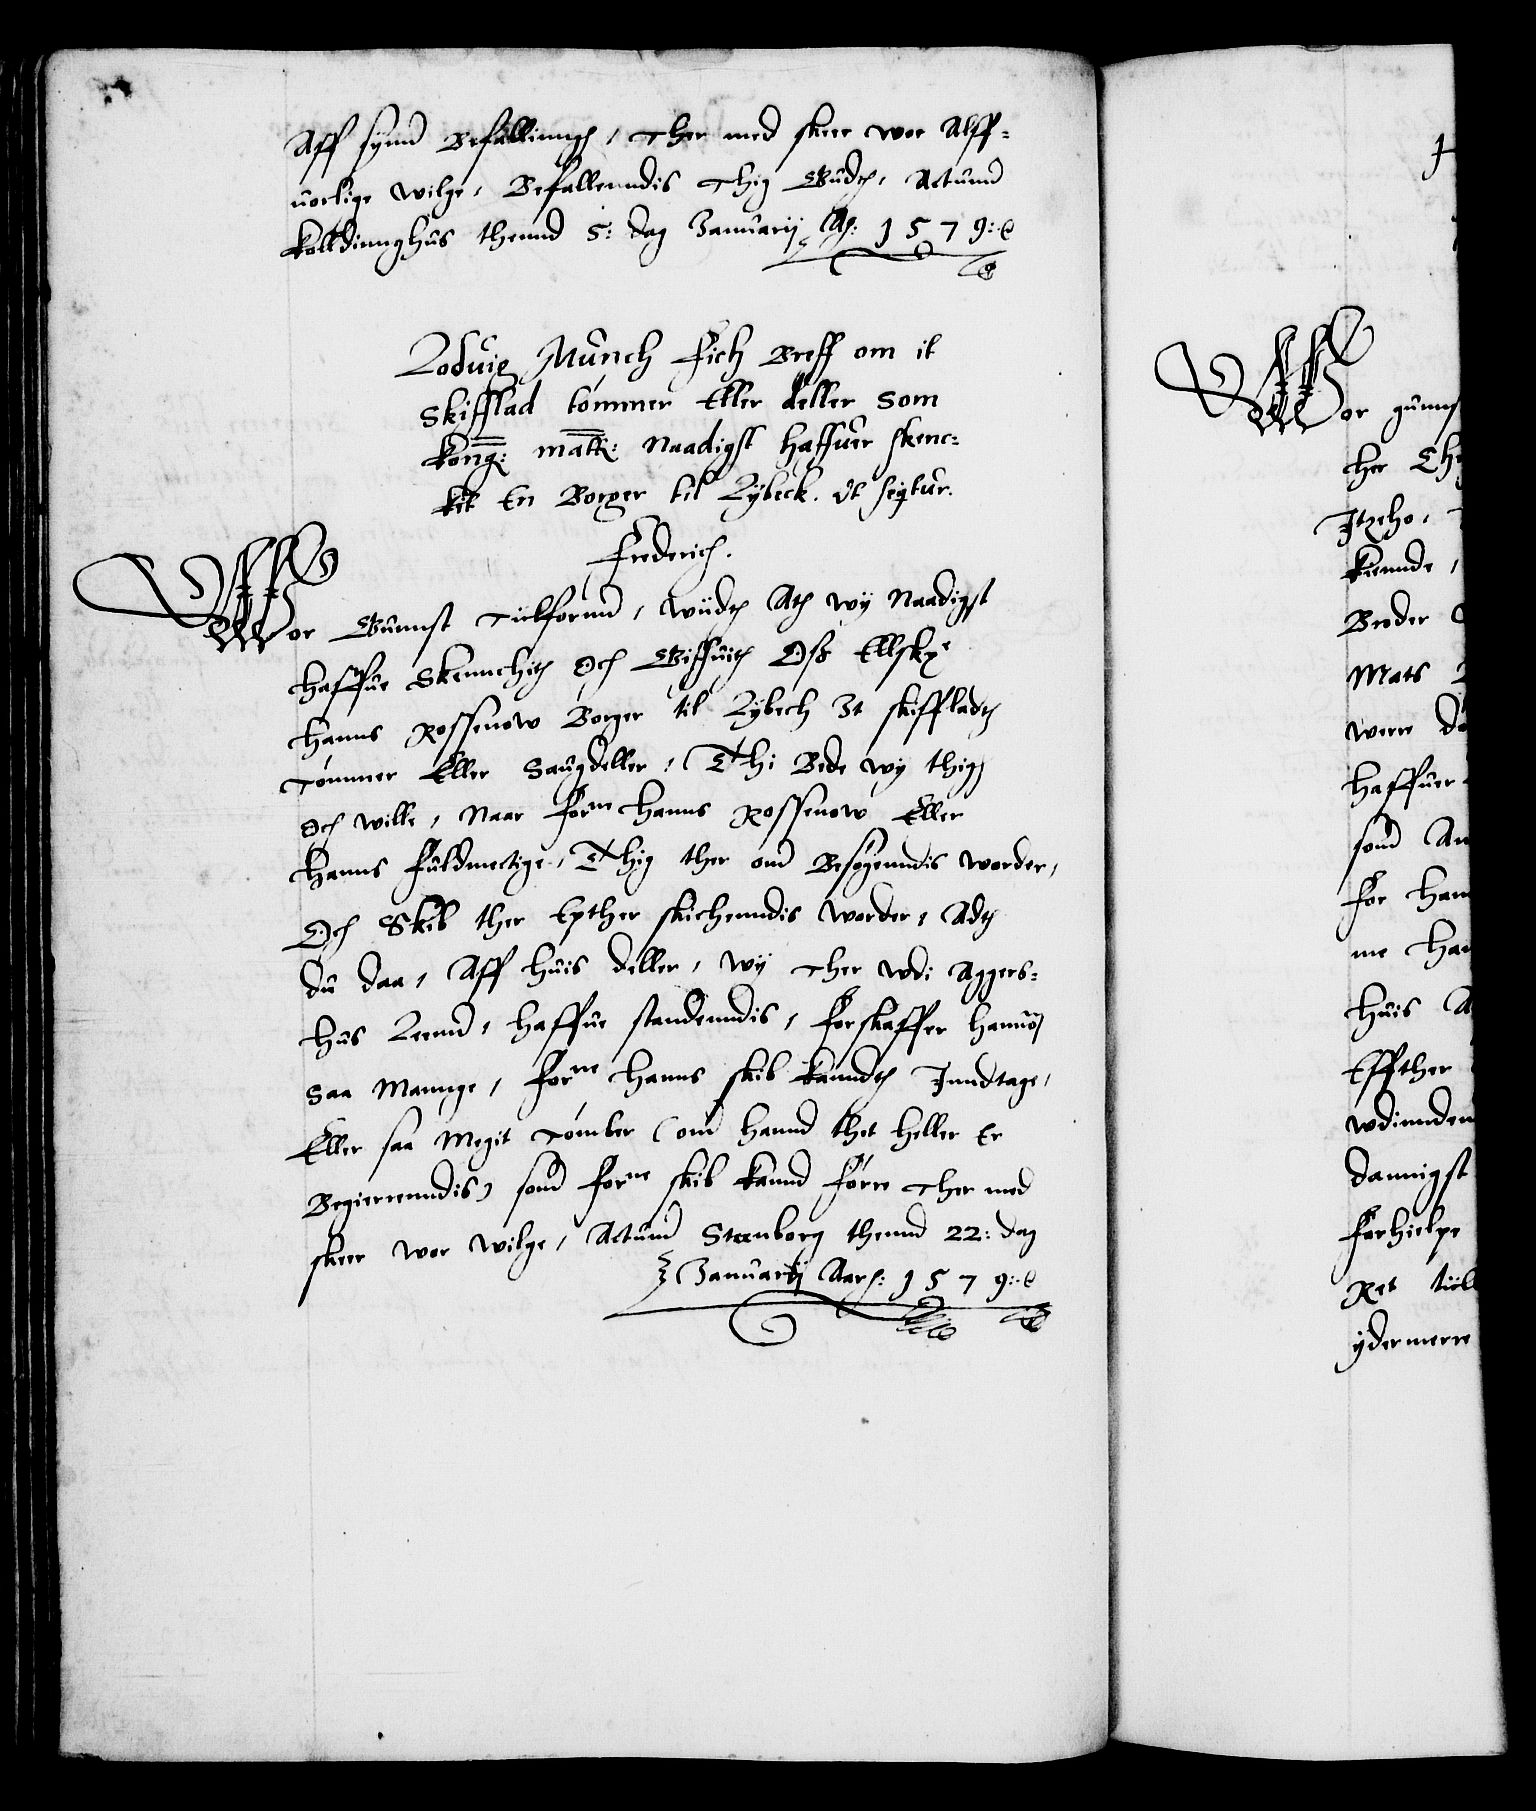 Aff synd Befallinngh, Ther med skeer wor Alff-
uorlige wilge, Befallenndis Thig Gudh, Actumd
Kolldinnghus thennd 5: dag Januarij Ah: 1579:
Loduig Munch Fich Breff om it
Skifflad tömmer Eller deller som
Kong: matt: Naadigst haffuer skenc-
kit En Borger til Lybeck. Vt seqtur.
Frederich.
Wor Gunnst Tiilfornn, Wiidh Ath wÿ Naadigst
haffue Skennchith Och Giffuith Oss Ellske
hanns Rossenow Borger til Lybech It skiffladh
Tömmer Eller Saugdeller, Thi Bede wÿ thig
Och wille, Naar forne hanns Rossenow Eller
hanns Fuldmectige, Thig ther om Besøgenndis worder,
Och Skib ther Epther skichenndis worder, Adh
du daa, Aff huis deller, wÿ Ther wdi Aggers-
hus Leenn, haffue standenndis, forskaffer hannom
saa Mannge, forne hanns skib kanndh Inndtage,
Eller saa Megit Tømber (om hannd thet heller Er
Begierrenndis) som forne skib kannd førre Ther med
skeer wor wilge, Actum Steenborg thennd 22: dag
Januarij Aarh: 1579:
Wor gunns
her Chr
Itzeho,
kiennde,
Broder
Mats
werre
haffuer
som An
for han
me han
huis A
Effther
wdinnden
dannigst
forhielpe
Ret tiil
ÿdermerre